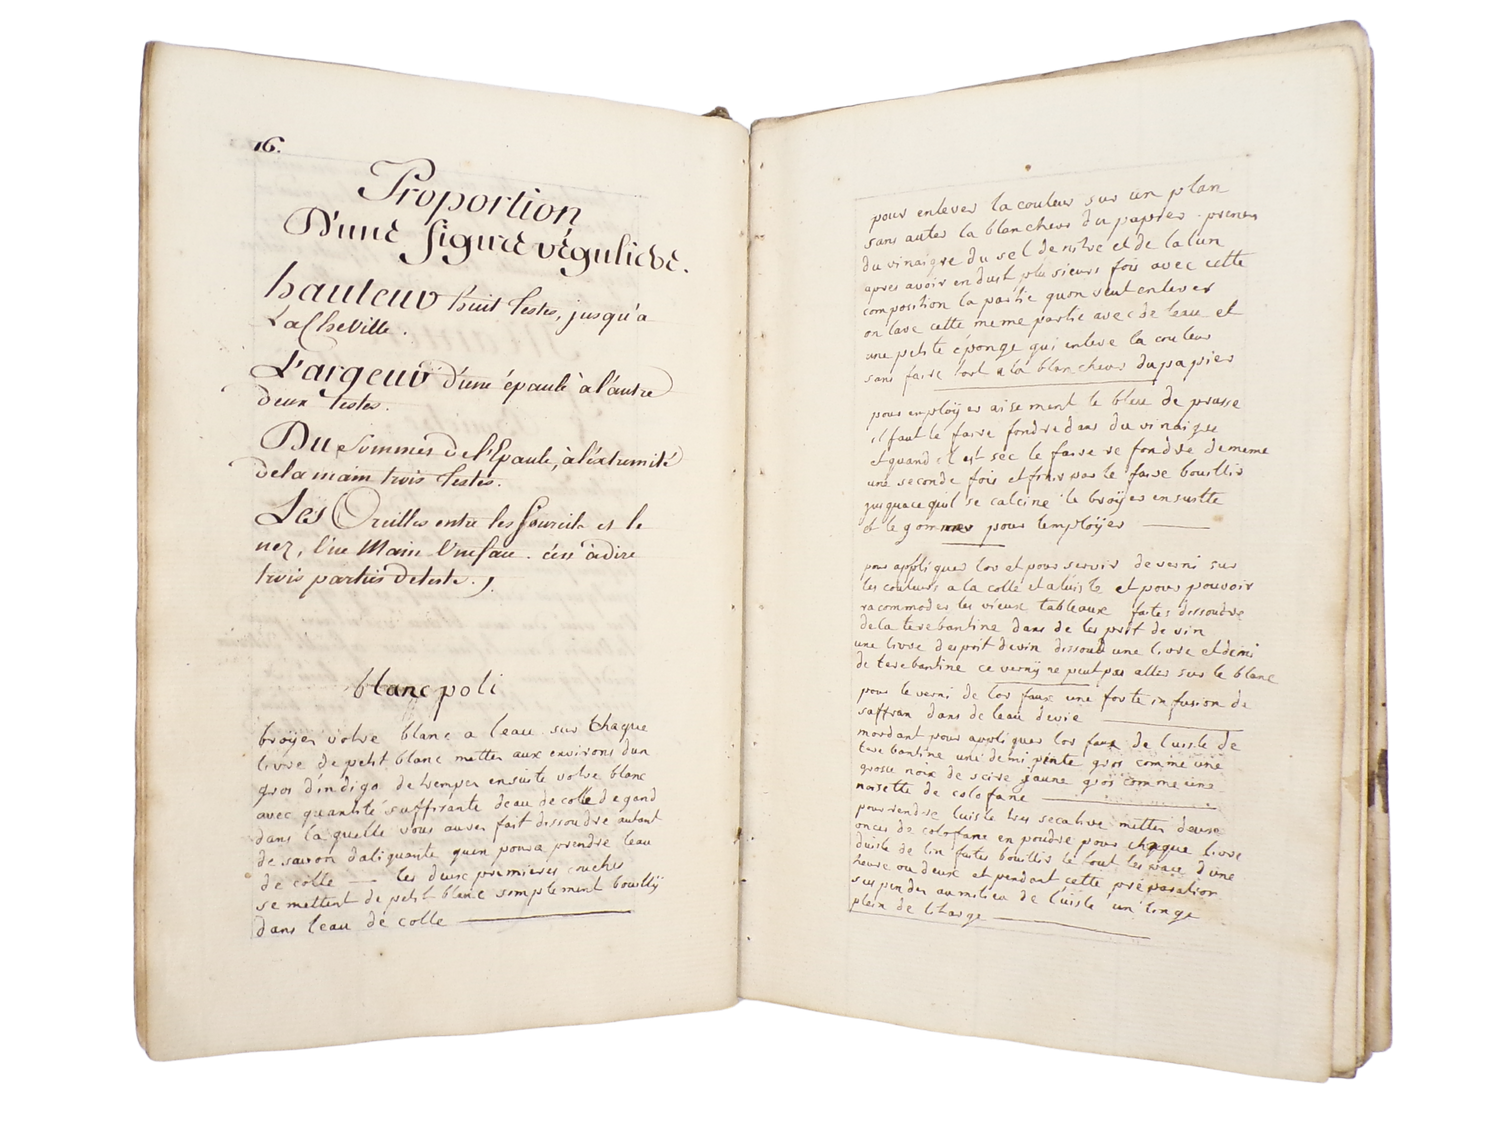 16.
Proportion
D'une figure régulière.
hauteur huit testes, jusqu'a
La Cheville.
Largeur d'une épaule à l'autre
deux testes.
Du Sommet de l'Epaule, à l'extremité
de la main trois testes.
Les Oreilles entre les Sourcils et le
nez, Une Main Une face. c'est à dire
trois parties de teste.
blanc poli
broÿer votre blanc a leau sur chaque
livre de petit blanc metter aux environs dun
gros d'indigo detremper ensuite votre blanc
avec quantité suffisante deau de colle de gand
dans la quelle vous aurer fait dissoudre autant
de savon daliquante quen poura prendre leau
de colle — les deux premieres couches
se mettent de petit blanc simplement bouilly
dans leau de colle
pour enlever la couleur sur un plan
sans auter la blancheur du papier. prener
du vinaigre du sel de nitre et de lalun
apres avoir enduit plusieurs fois avec cette
composition la partie quon veut enlever
on lave cette meme partie avec de leau et
une petite éponge qui enleve la couleur
sans faire tort a la blancheur du papier
pour employer aisement le bleu de prusse
il faut le faire fondre dans du vinaigre
et quand il est sec le faire re fondre de meme
une seconde fois et finir par le faire bouillir
jusquace quil se calcine le broÿer ensuitte
et le gommer pour lemploÿer
pour appliquer lor et pour servir de verni sur
les couleurs a la colle et a luisle et pour pouvoir
racommoder les vieux tableaux faites dissoudre
de la terebantine dans de lesprit de vin
une livre desprit de vin dissout une livre et demi
de terebantine ce verny ne peut pas aller sur le blanc
pour le verni de lor faux une forte infusion de
saffran dans de leau devie
mordant pour appliquer lor faux de luisle de
terebantine une demi pinte gros comme une
grosse noix de scire jaune gros comme une
noisette de colofane
pour rendre luisle tres secative metter deuxe
onces de colofane en poudre pour chaque livre
duisle de lin faites bouillir le tout lespace d'une
heure ou deux et pendant cette préparation
suspender au milieu de l'uisle un linge
plein de litarge